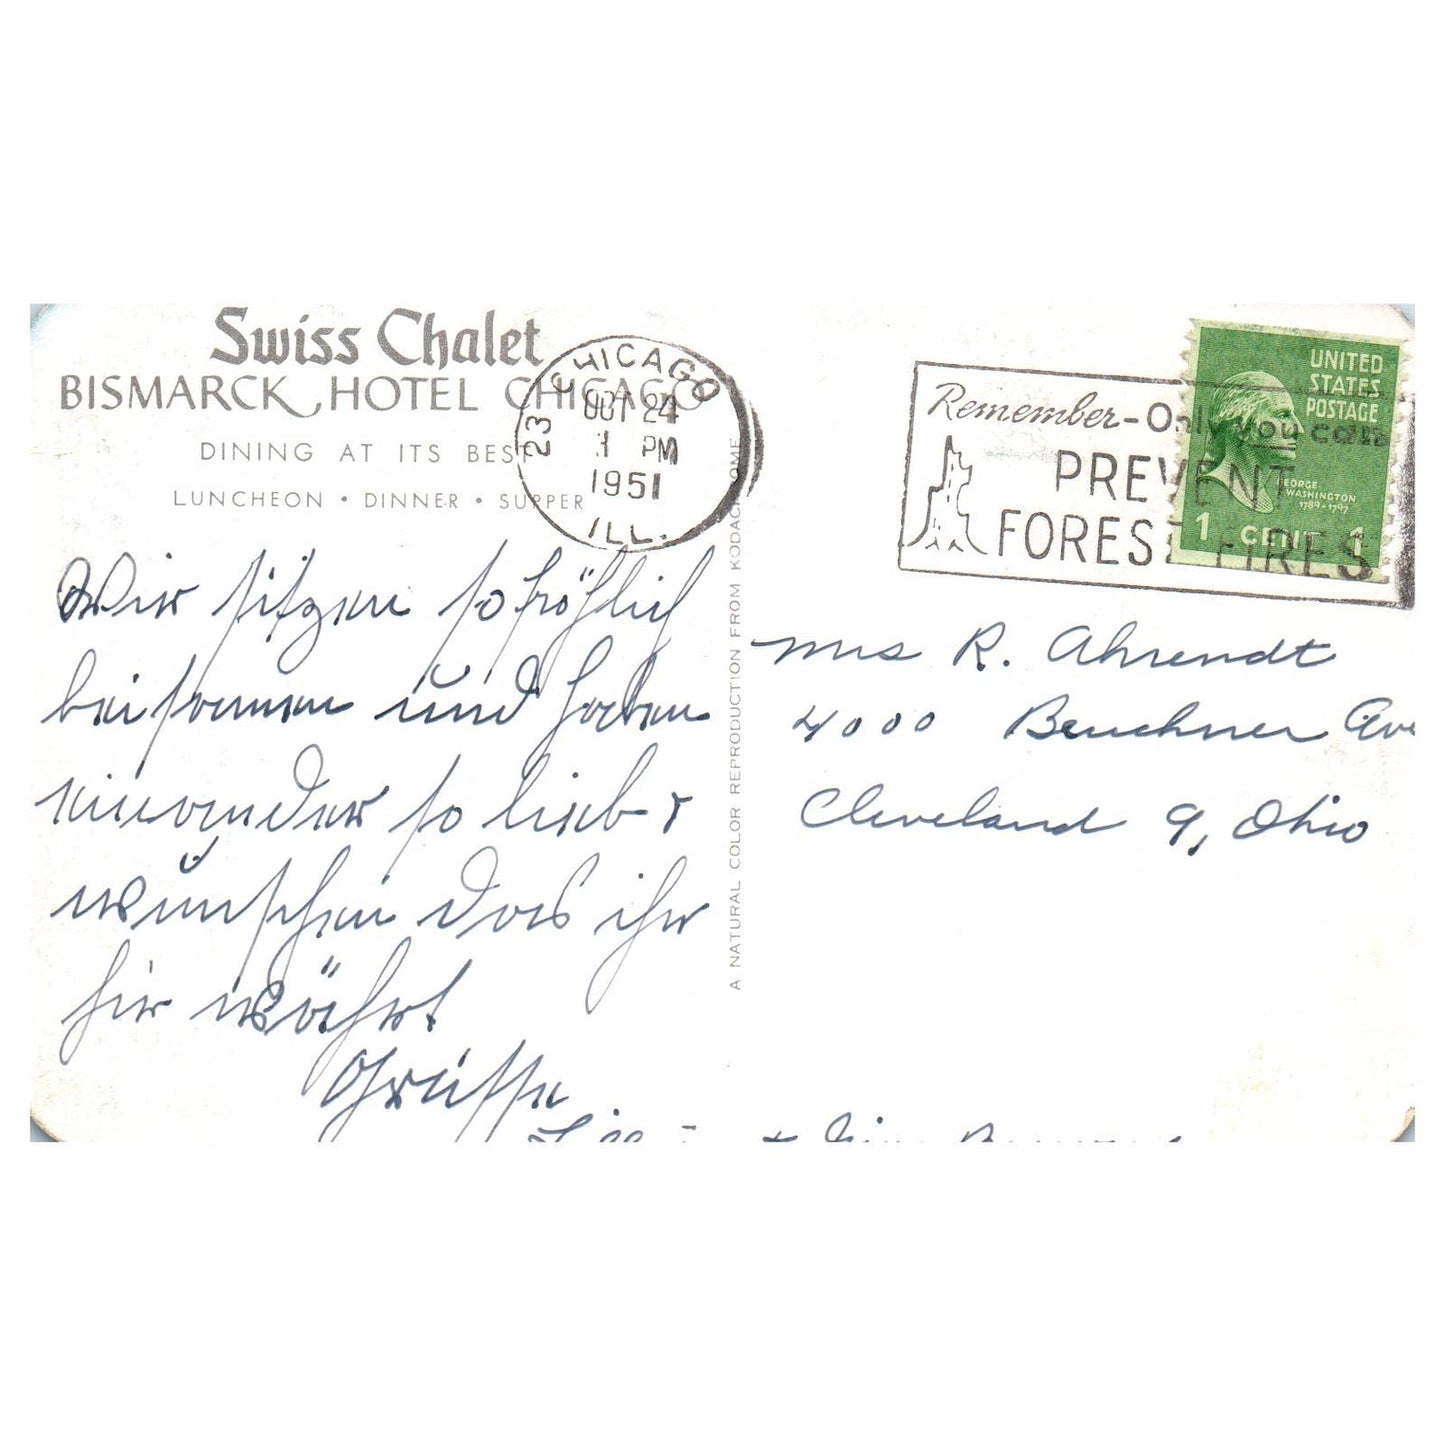 Swiss Chalet
BISMARCK HOTEL CHICAGO
DINING AT ITS BEST
LUNCHEON • DINNER • SUPPER
Wir sitzen so fröhlich
beisammen und haben
einander so lieb +
wünschen das ihr
hir währt
Grüsse
A NATURAL COLOR REPRODUCTION FROM KODACHROME
CHICAGO
23
OCT 24
1 PM
1951
ILL.
Remember-Only you can
PREVENT
FOREST FIRES
UNITED
STATES
POSTAGE
GEORGE
WASHINGTON
1789-1797
1 CENT 1
Mrs R. Ahrendt
4000 Beuchner Ave
Cleveland 9, Ohio